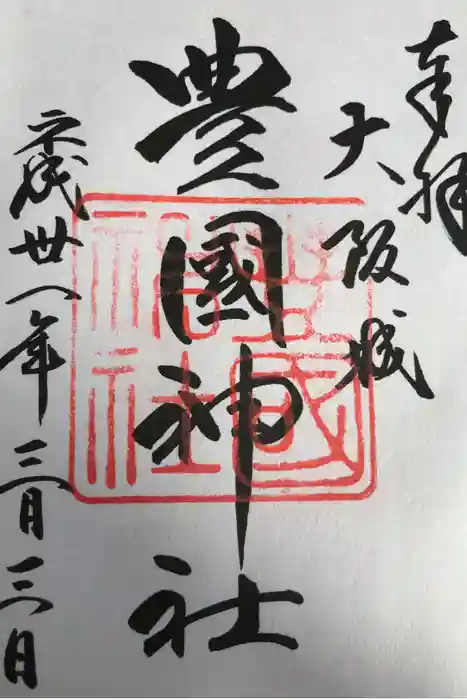 奉拝
大阪城
豊國神社
平成卅一年三月三日
豊國
神社